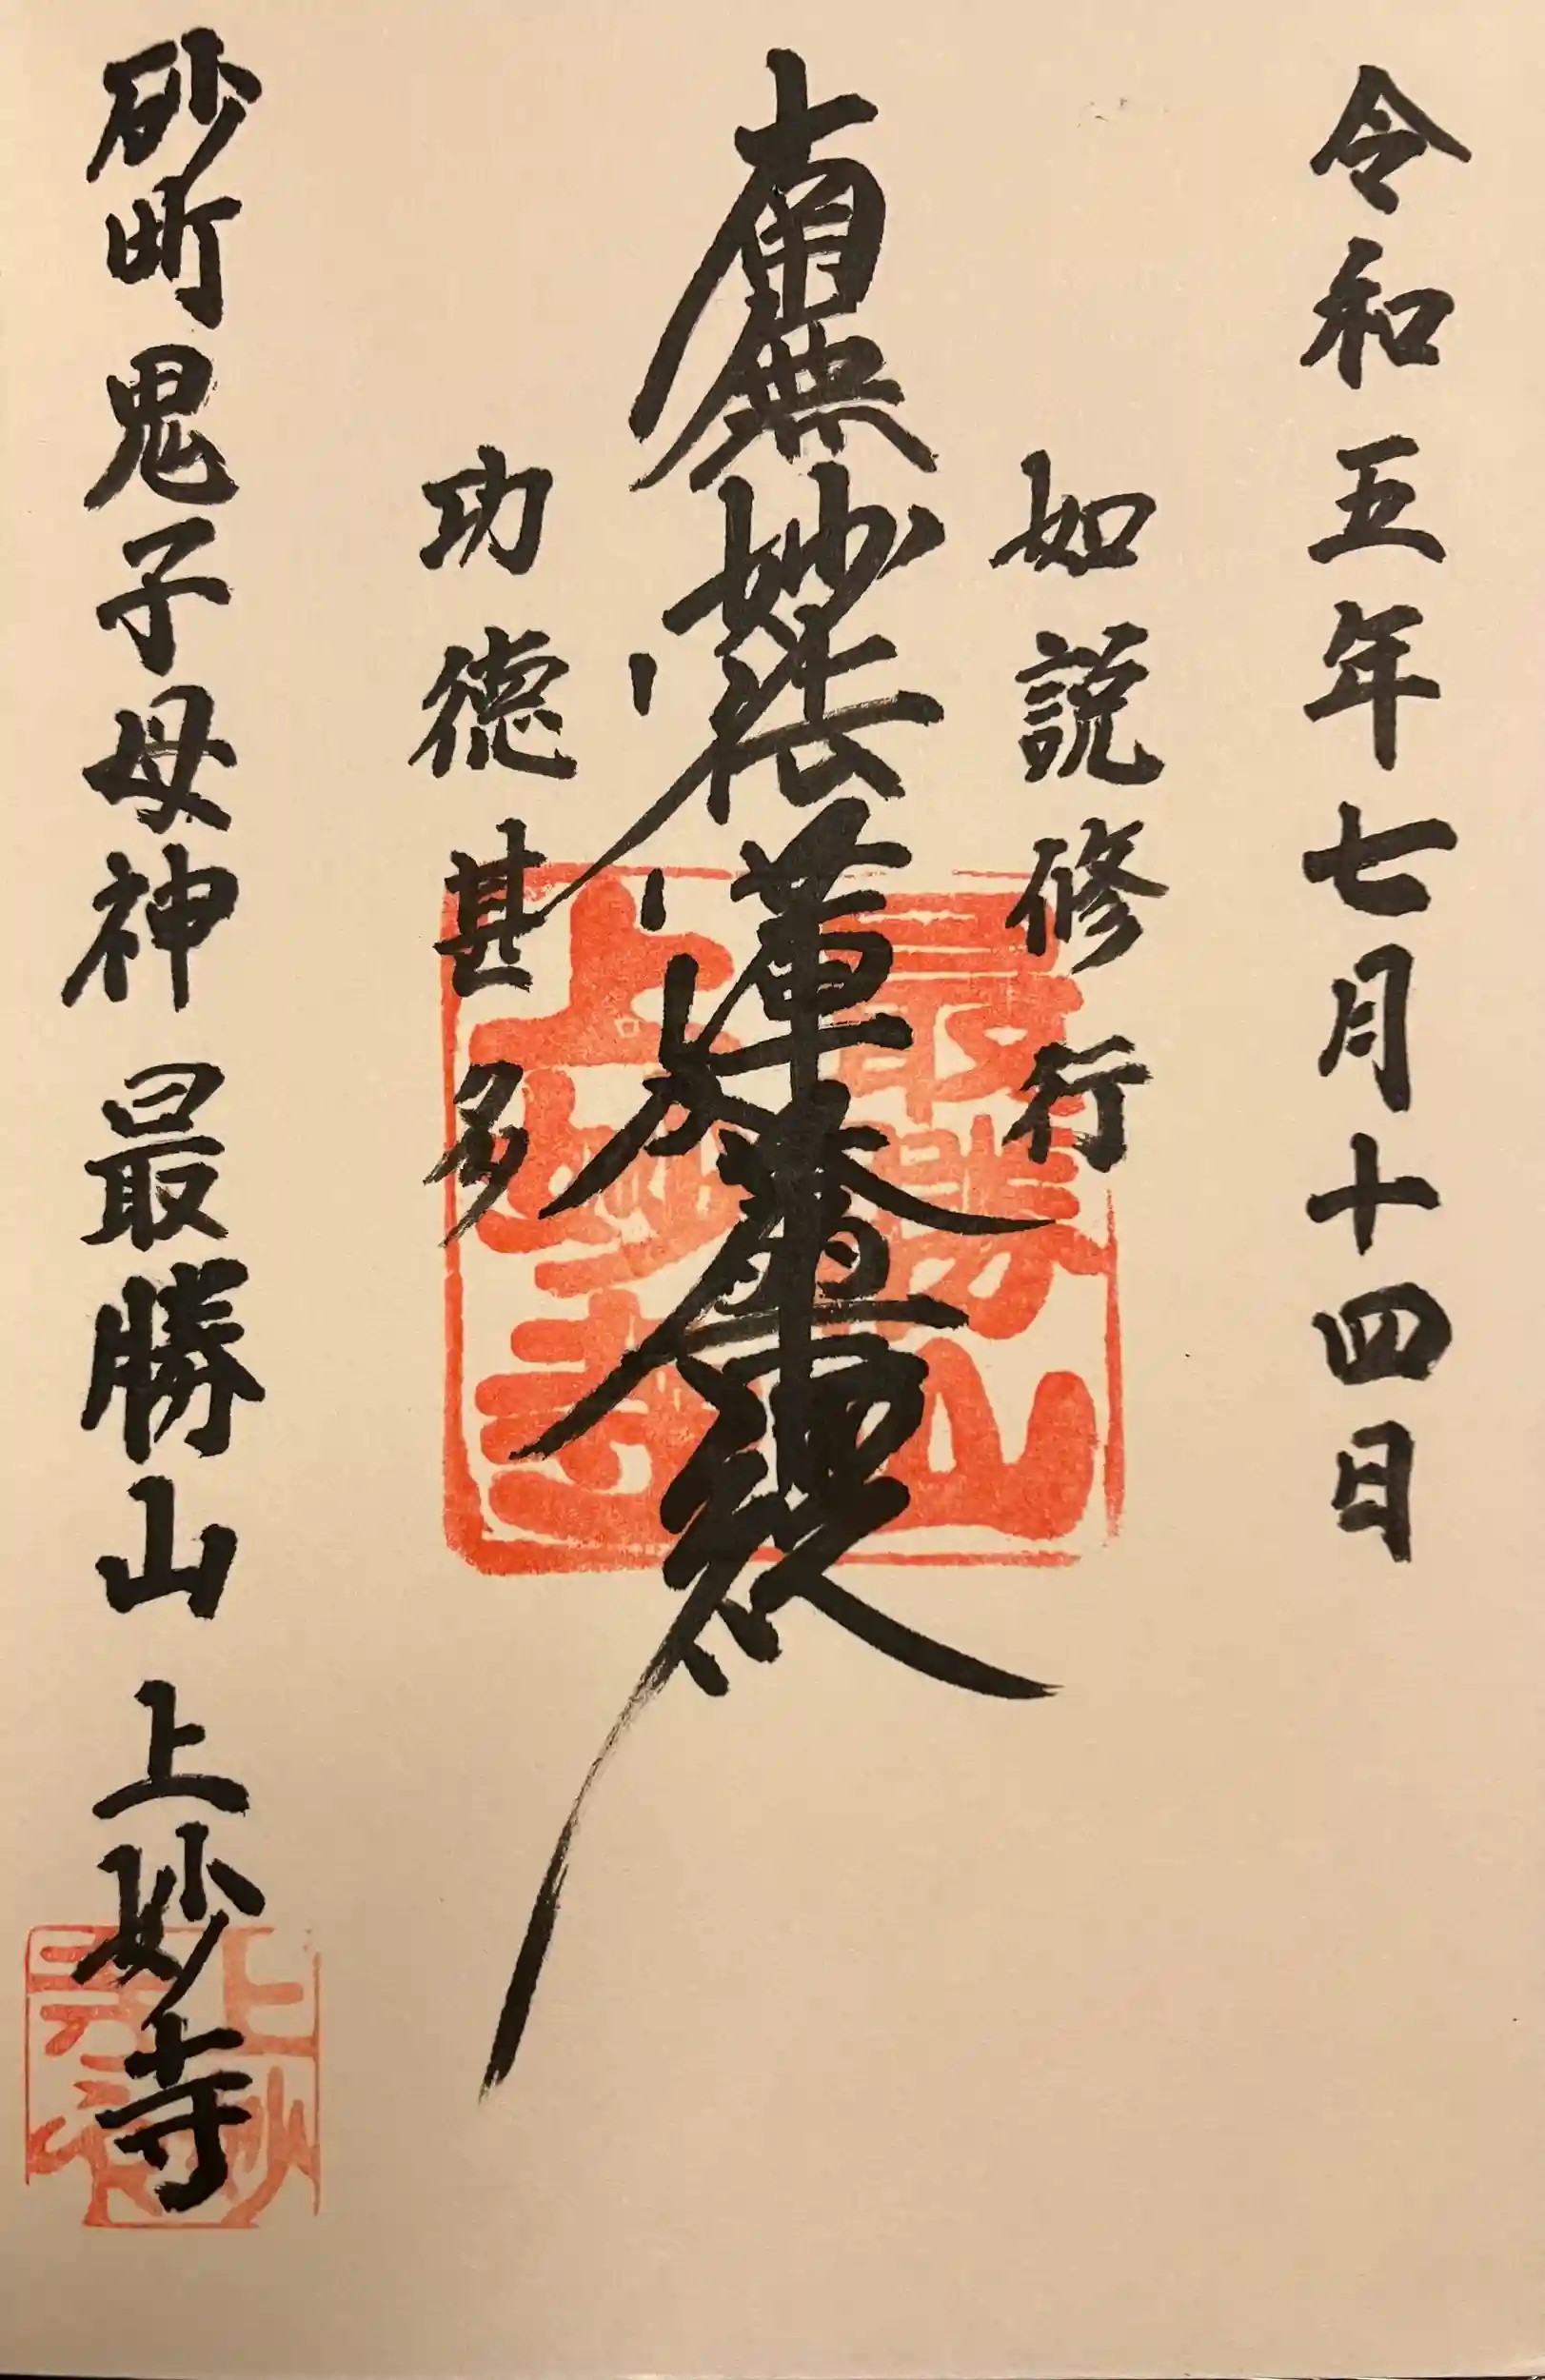 令和五年七月十四日
如説修行
南無妙法蓮華経
功徳甚多
砂町鬼子母神 最勝山 上妙寺
最勝山
上妙寺